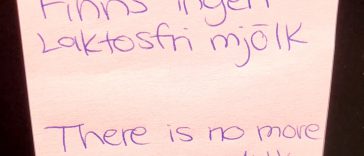 Finns ingen
Laktosfri mjölk
There is no more